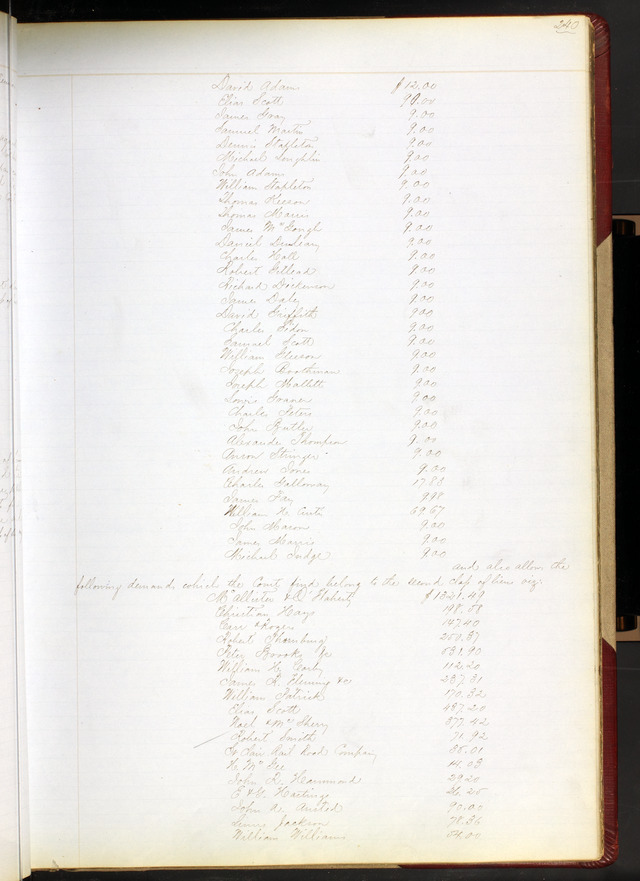 240
David Adam $12.00
Elias Scott 90.00
James Gray 9.00
Samuel Martin 9.00
Dennis Stapleton 9.00
Michael Loughlin 9.00
John Adam 9.00
William Stapleton 9.00
Thomas 9.00
Thomas Harris 9.00
James McGough 9.00
Daniel Dunleavy 9.00
Charles Hall 9.00
Robert 9.00
Richard Dickenson 9.00
James Daley 9.00
David Griffith 9.00
Charles 9.00
Samuel Scott 9.00
William Gleeson 9.00
Joseph Boothman 9.00
Joseph Hallett 9.00
Louis 9.00
Charles Peters 9.00
John Butler 9.00
Alexander Thompson 9.00
Anson Stringer 9.00
Andrew Jones 9.00
Charles Galloway 17.83
James Fay 9.98
William H. 69.67
John Mason 9.00
James 9.00
Michael Judge 9.00
and also allow the
following demands which the Court find belong to the second class of liens viz:
McAllister & O'Flaherty $1321.49
Christian Hays 198.58
Carr & Rogers 147.40
Robert Thornburg 250.37
Peter Brooks Jr 631.90
William H. 112.20
James R. Fleming & co 237.31
William Patrick 170.32
Elias Scott 487.20
Noel & McSherry 377.42
Robert Smith 71.92
St Clair Rail Road Company 35.01
H. McGee 14.03
John R. Hammond 29.20
E & G. Hastings 26.25
John A. 90.00
Jackson 78.36
William Williams 54.00